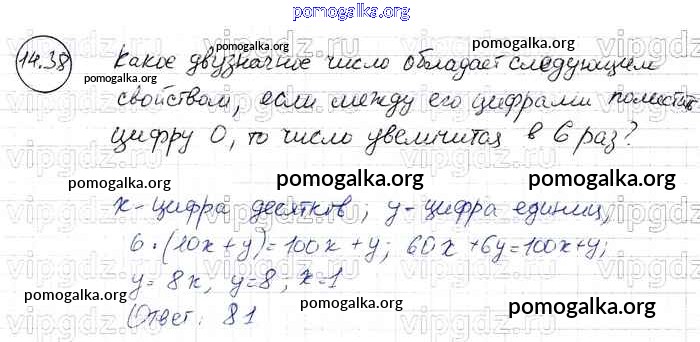 pomogalka.org
14.38 Какое двузначное число обладает следующим
свойством, если между его цифрами поместить
цифру 0, то число увеличится в 6 раз?
pomogalka.org
pomogalka.org
x-цифра десятков; y-цифра единиц,
6·(10x+y)=100x+y; 60x+6y=100x+y;
y=8x, y=8; x=1
Ответ: 81
pomogalka.org
pomogalka.org
pomogalka.org
pomogalka.org
pomogalka.org
pomogalka.org
pomogalka.org